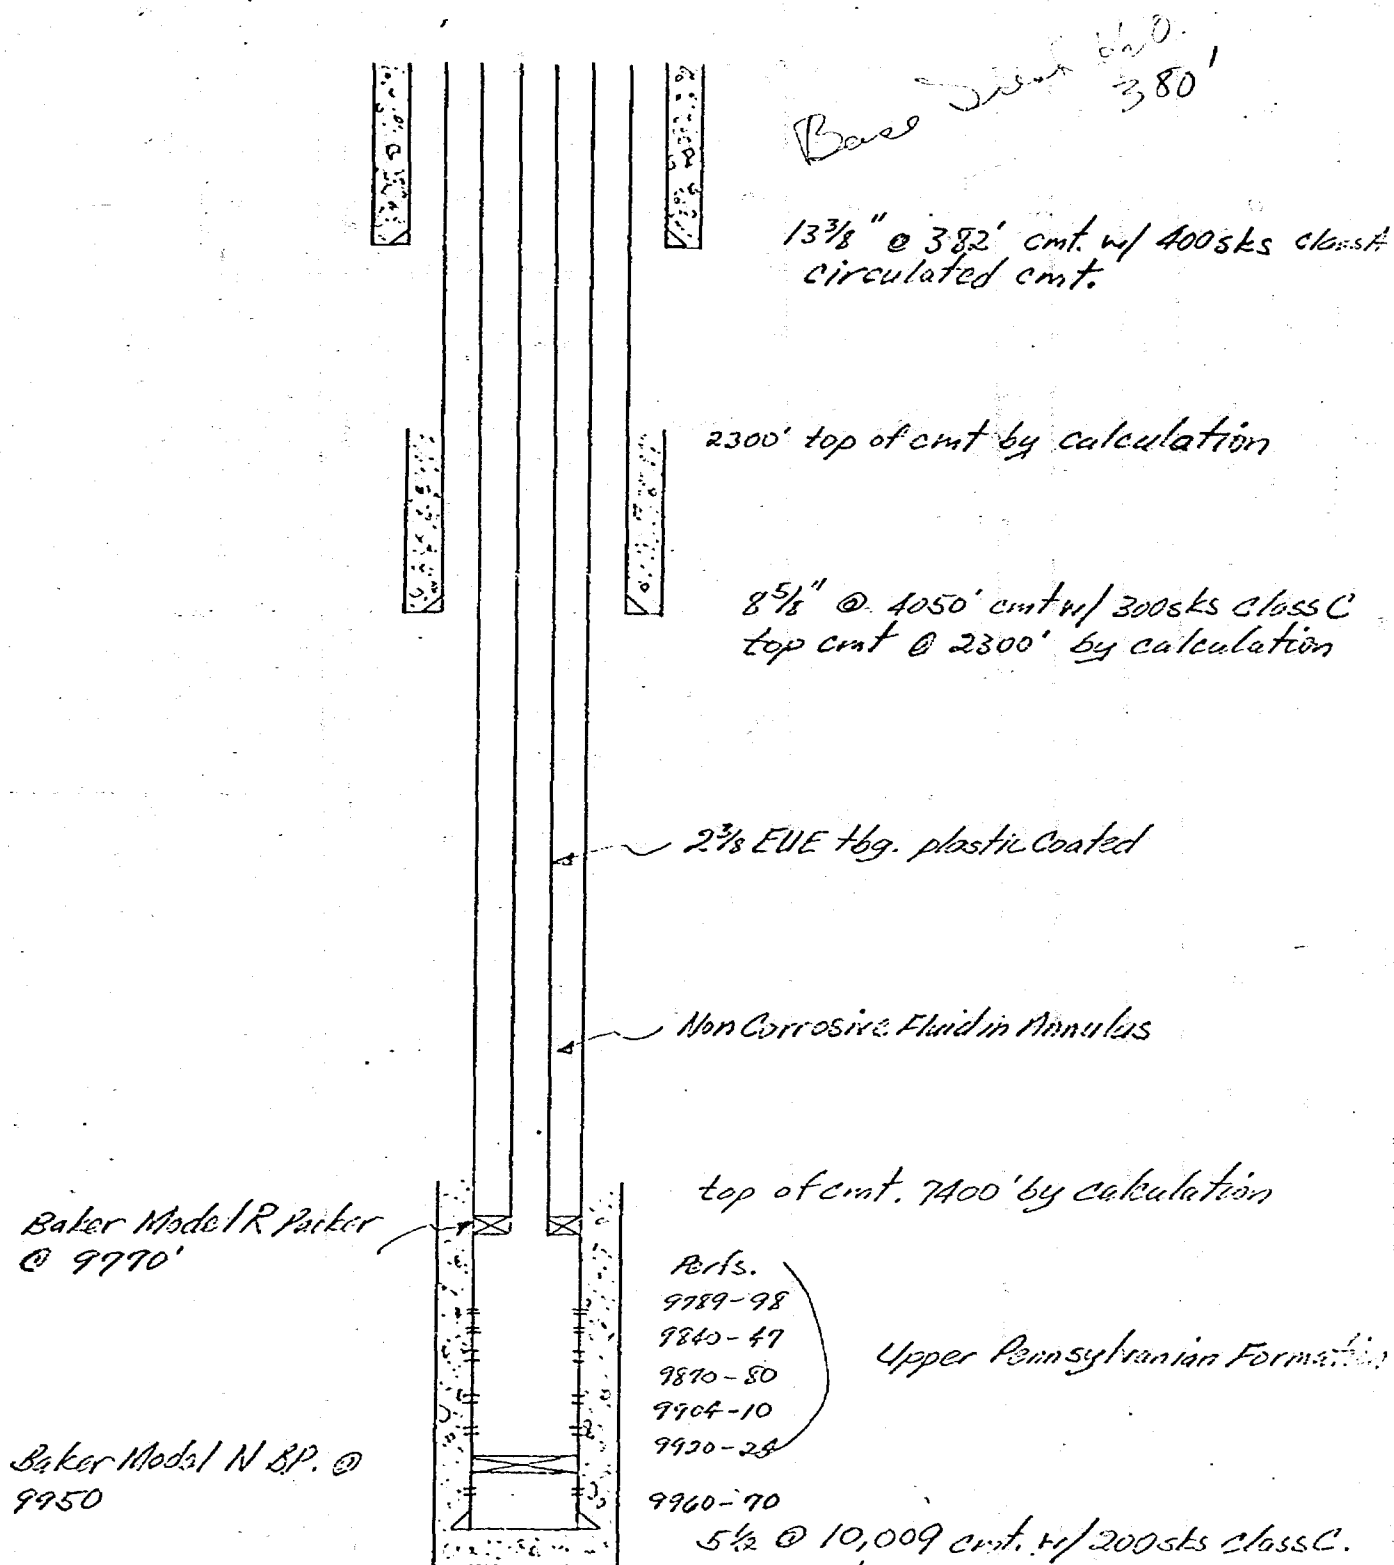 Base H2O.
380'
13 3/8" @ 382' cmt. w/ 400sks class A
circulated cmt.
2300' top of cmt by calculation
8 5/8" @ 4050' cmt w/ 300sks Class C
top cmt @ 2300' by calculation
2 3/8 EUE tbg. plastic Coated
Non Corrosive Fluid in Annulus
top of cmt. 7400' by calculation
Baker Model R Packer
@ 9770'
Perfs.
9789-98
9840-47
9870-80
9904-10
Upper Pennsylvanian Formation
Baker Model N BP. @
9950
9960-70
5 1/2 @ 10,009 cmt. w/ 200sks class C.